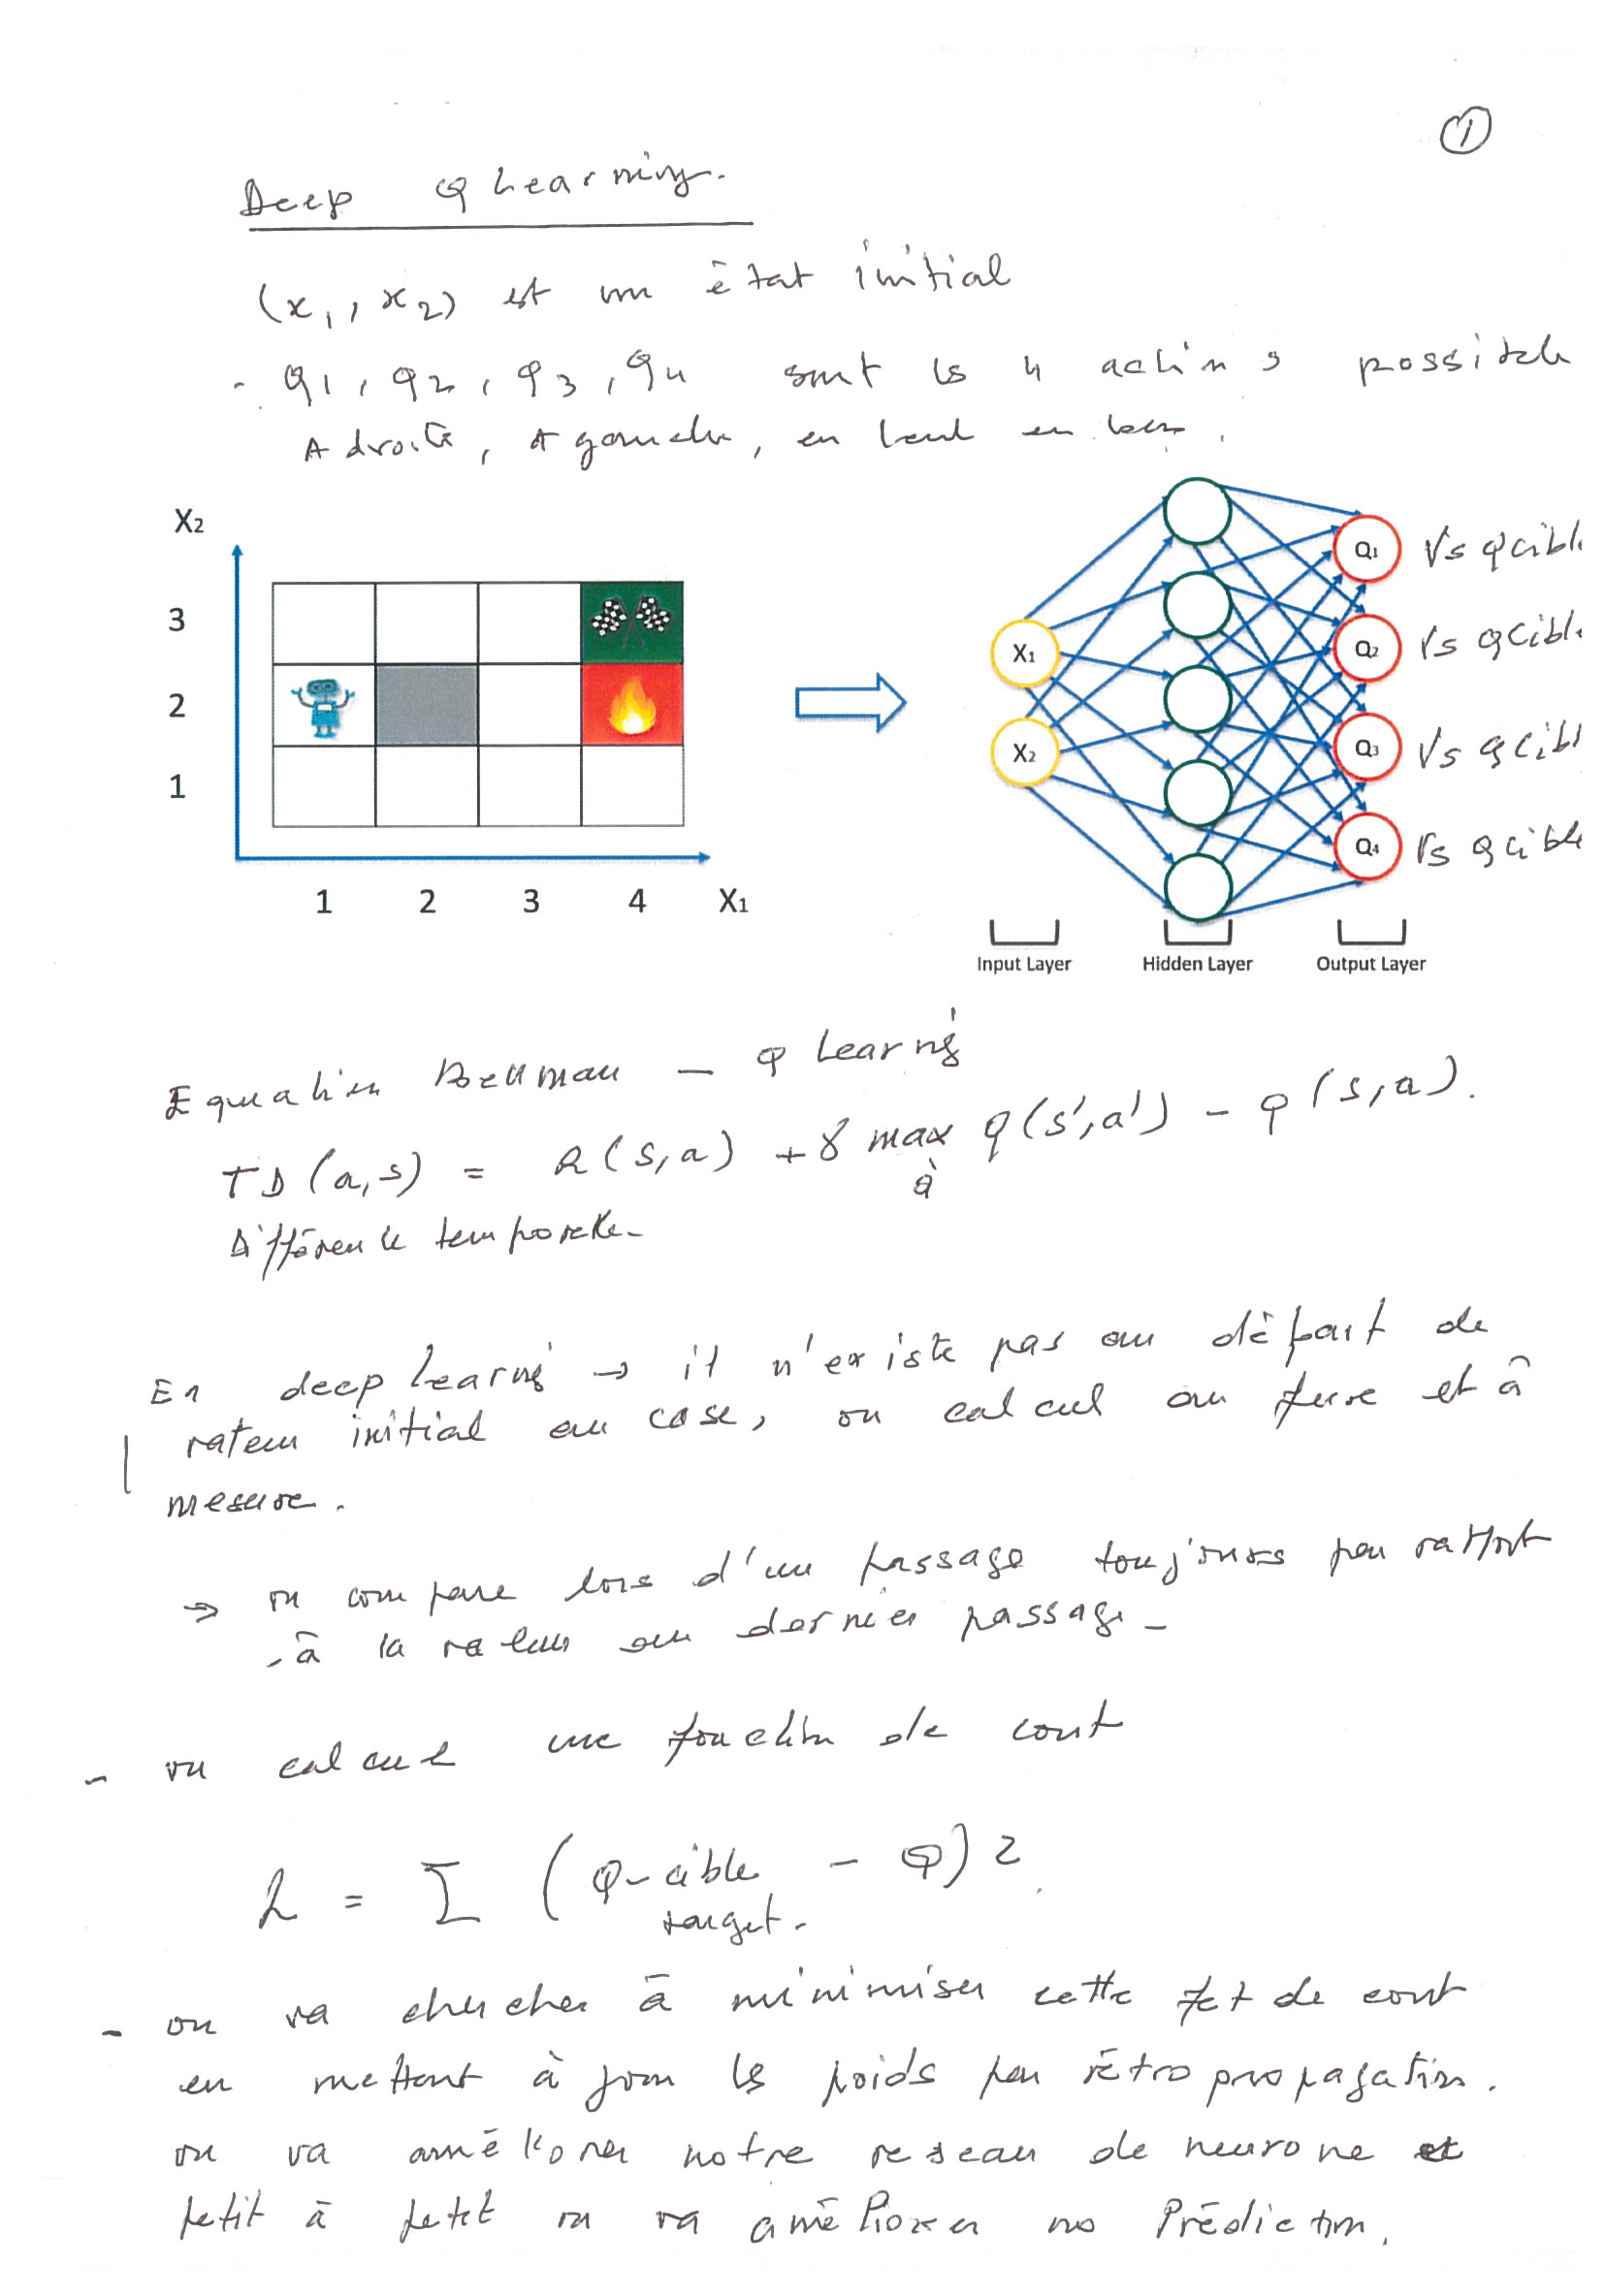 ①
Deep Q Learning.
(x1, x2) est un état initial
- Q1, Q2, Q3, Q4 sont les 4 actions possible
A droite, A gauche, en haut en bas.
X2
3
2
1
1 2 3 4 X1
X1
X2
Q1 Vs Q cible
Q2 Vs Q cible
Q3 Vs Q cibl
Q4 Vs Q cible
Input Layer Hidden Layer Output Layer
Equation Bellman – Q Learning
TD (a,s) = R(s,a) + γ max Q(s',a') - Q(s,a).
a'
Différence temporelle-
En deep learning → il n'existe pas au départ de
valeur initial au case, on calcul au fur et à
mesure.
→ on compare lors d'un passage toujours par rapport
à la valeur au dernier passage-
- on calcule une fonction de cout
L = Σ (Q-cible - Q)2
target.
- on va chercher à minimiser cette fct de cout
en mettant à jour les poids par rétropropagation.
on va améliorer notre reseau de neurone et
petit à petit on va améliorer nos Prédiction.